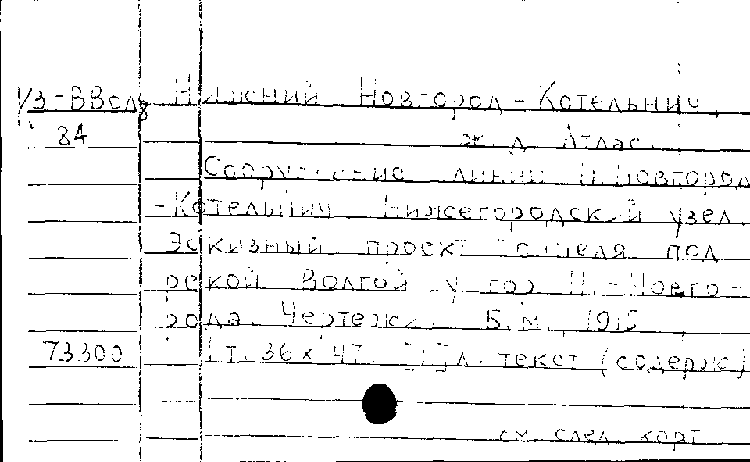 1/3-ВВсд Нижний Новгород-Котельнич,
84 ж.д. Атлас.
Сооружение линии Н.Новгород
-Котельнич. Нижегородский узел.
Эскизный проект тоннеля под
рекой Волгой у гор. Н.-Новго-
рода. Чертежи. Б.м., 1915
73300 1 т. 36х47. л. текст (содерж)
см. след. карт